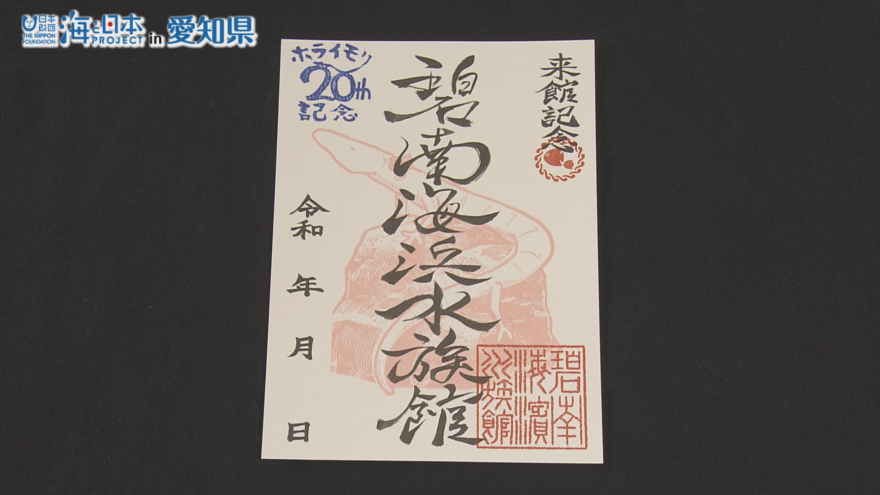 日本財団
THE NIPPON FOUNDATION
海と日本
PROJECT in 愛知県
来館記念
碧南海浜水族館
ホライモリ
20th
記念
令和 年 月 日
碧南
海濱
水族館